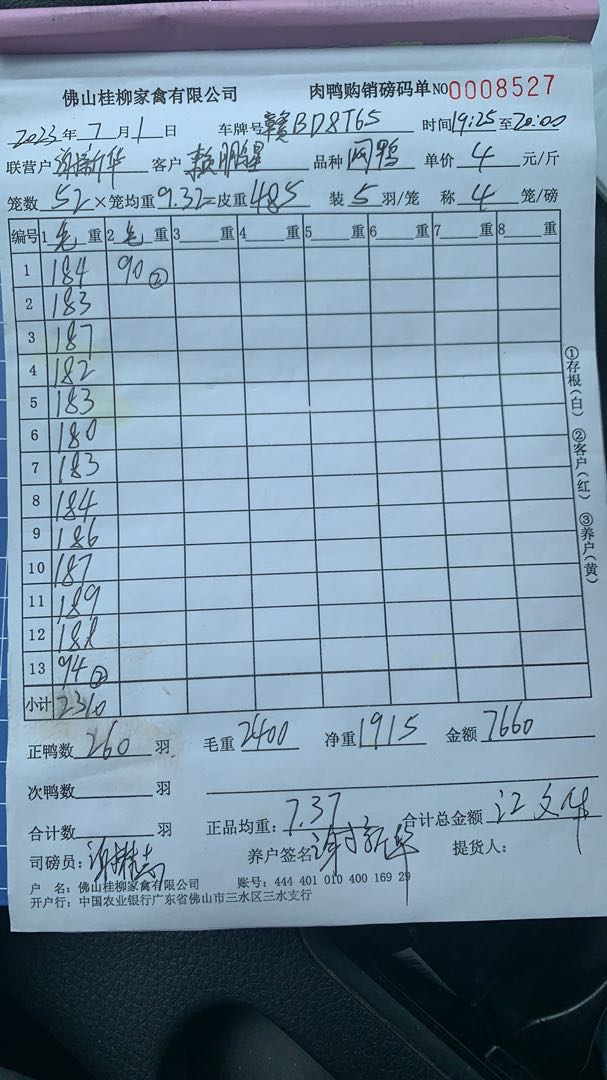 佛山桂柳家禽有限公司 肉鸭购销磅码单NO0008527
2023年7月1日 车牌号赣BD8T65 时间19:25至20:00
联营户谢新华 客户赖明星 品种网鸭 单价4元/斤
笼数52×笼均重9.32=皮重485 装5羽/笼 称4笼/磅
编号 1毛重 2毛重 3重 4重 5重 6重 7重 8重
1 184 90②
2 183
3 187
4 182
5 183
6 180
7 183
8 184
9 186
10 187
11 189
12 188
13 94②
小计 2310
①存根(白) ②客户(红) ③养户(黄)
正鸭数260羽 毛重2400 净重1915 金额7660
次鸭数羽
合计数羽 正品均重:7.37 合计总金额江文华
司磅员: 养户签名谢新华 提货人:
户 名:佛山桂柳家禽有限公司 账号:444 401 010 400 169 29
开户行:中国农业银行广东省佛山市三水区三水支行